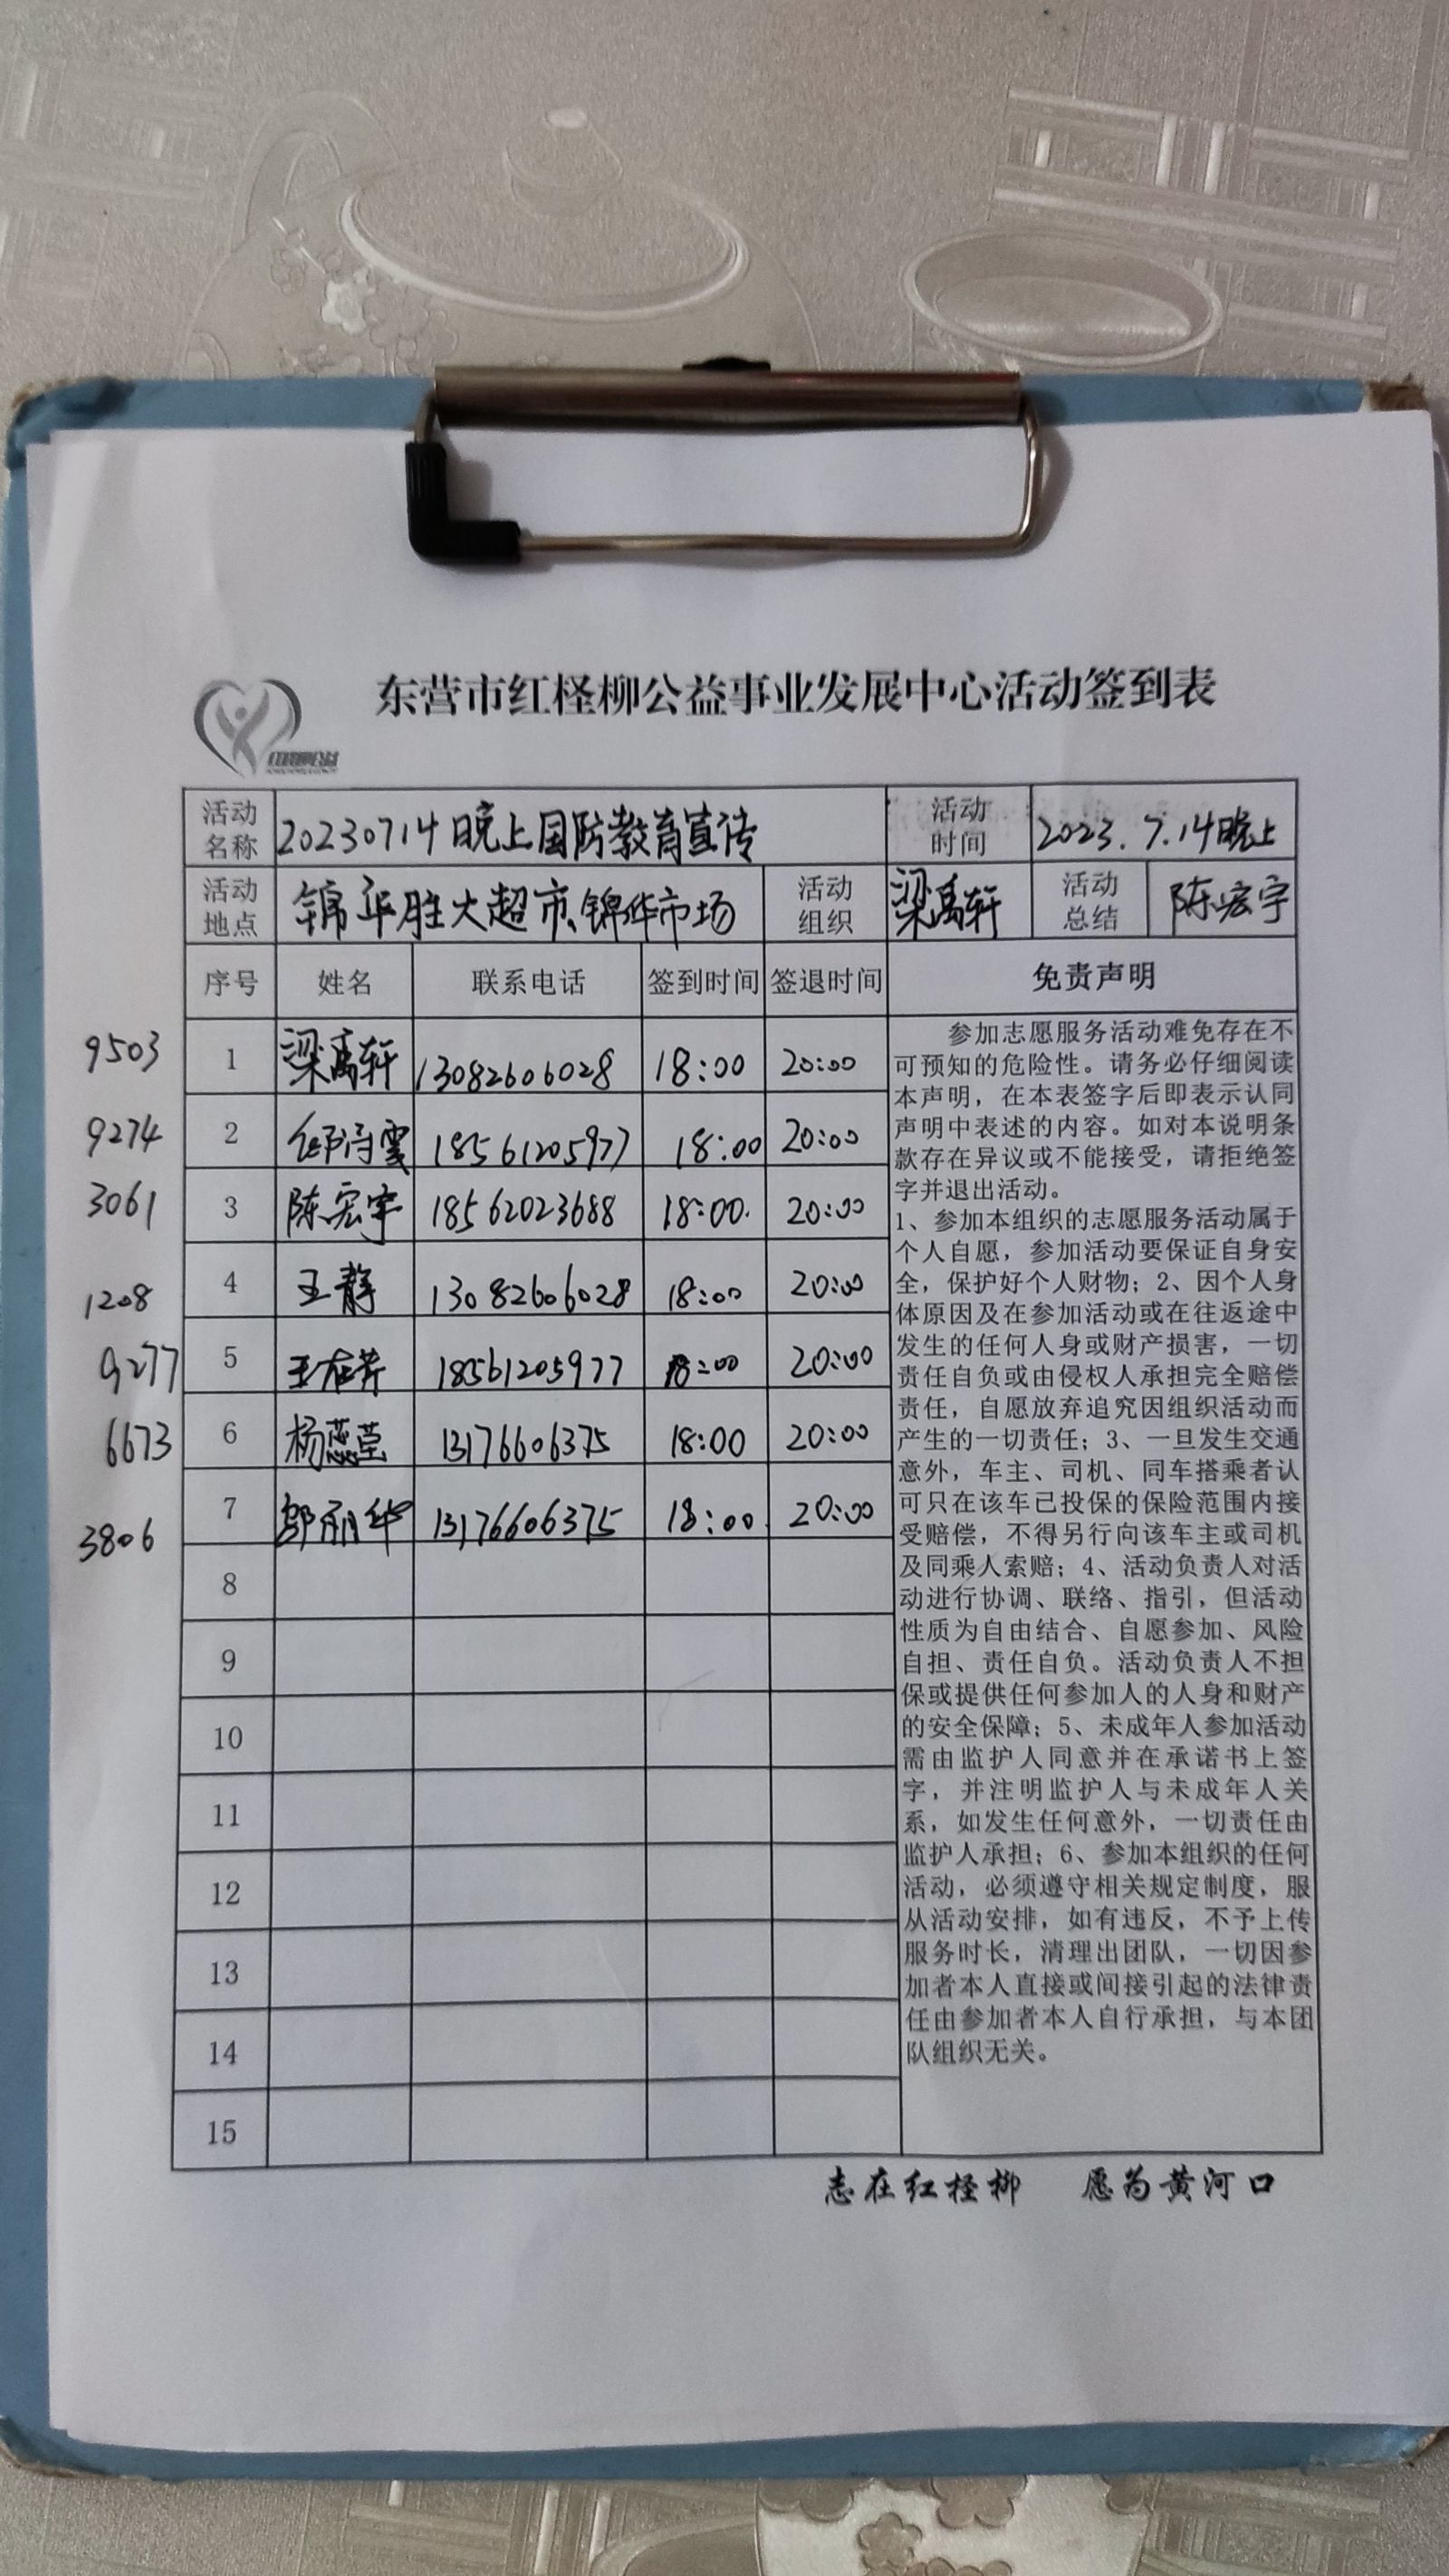 东营市红柽柳公益事业发展中心活动签到表
活动名称 20230714晚上国防教育宣传 活动时间 2023.7.14晚上
活动地点 锦华胜大超市、锦华市场 活动组织 梁禹轩 活动总结 陈宏宇
序号 姓名 联系电话 签到时间 签退时间 免责声明
9503 1 梁禹轩 13082606028 18:00 20:00
9274 2 18561205977 18:00 20:00
3061 3 陈宏宇 18562023688 18:00. 20:00
1208 4 王静 13082606028 18:00 20:00
9277 5 18561205977 18:00 20:00
6673 6 杨蕊莹 13176606375 18:00 20:00
3806 7 13176606375 18:00 20:00
8
9
10
11
12
13
14
15
参加志愿服务活动难免存在不
可预知的危险性。请务必仔细阅读
本声明，在本表签字后即表示认同
声明中表述的内容。如对本说明条
款存在异议或不能接受，请拒绝签
字并退出活动。
1、参加本组织的志愿服务活动属于
个人自愿，参加活动要保证自身安
全，保护好个人财物；2、因个人身
体原因及在参加活动或在往返途中
发生的任何人身或财产损害，一切
责任自负或由侵权人承担完全赔偿
责任，自愿放弃追究因组织活动而
产生的一切责任；3、一旦发生交通
意外，车主、司机、同车搭乘者认
可只在该车已投保的保险范围内接
受赔偿，不得另行向该车主或司机
及同乘人索赔；4、活动负责人对活
动进行协调、联络、指引，但活动
性质为自由结合、自愿参加、风险
自担、责任自负。活动负责人不担
保或提供任何参加人的人身和财产
的安全保障；5、未成年人参加活动
需由监护人同意并在承诺书上签
字，并注明监护人与未成年人关
系，如发生任何意外，一切责任由
监护人承担；6、参加本组织的任何
活动，必须遵守相关规定制度，服
从活动安排，如有违反，不予上传
服务时长，清理出团队，一切因参
加者本人直接或间接引起的法律责
任由参加者本人自行承担，与本团
队组织无关。
志在红柽柳 愿为黄河口